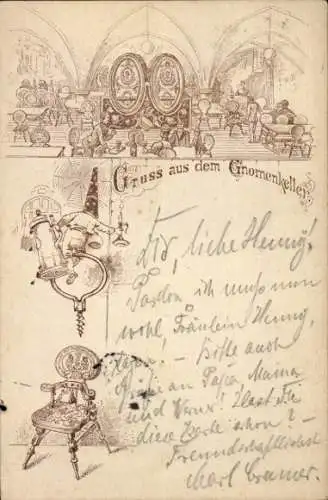 Gruss aus dem Gnomenkeller
liebe Henny!
Pardon ich muß nun
wohl, Fräulein Henny,
sagen. — Bitte auch
Grüße an Papa, Mama
und Hast Du
diese Karte schon? —
Freundschaftlichst
Carl Cramer.